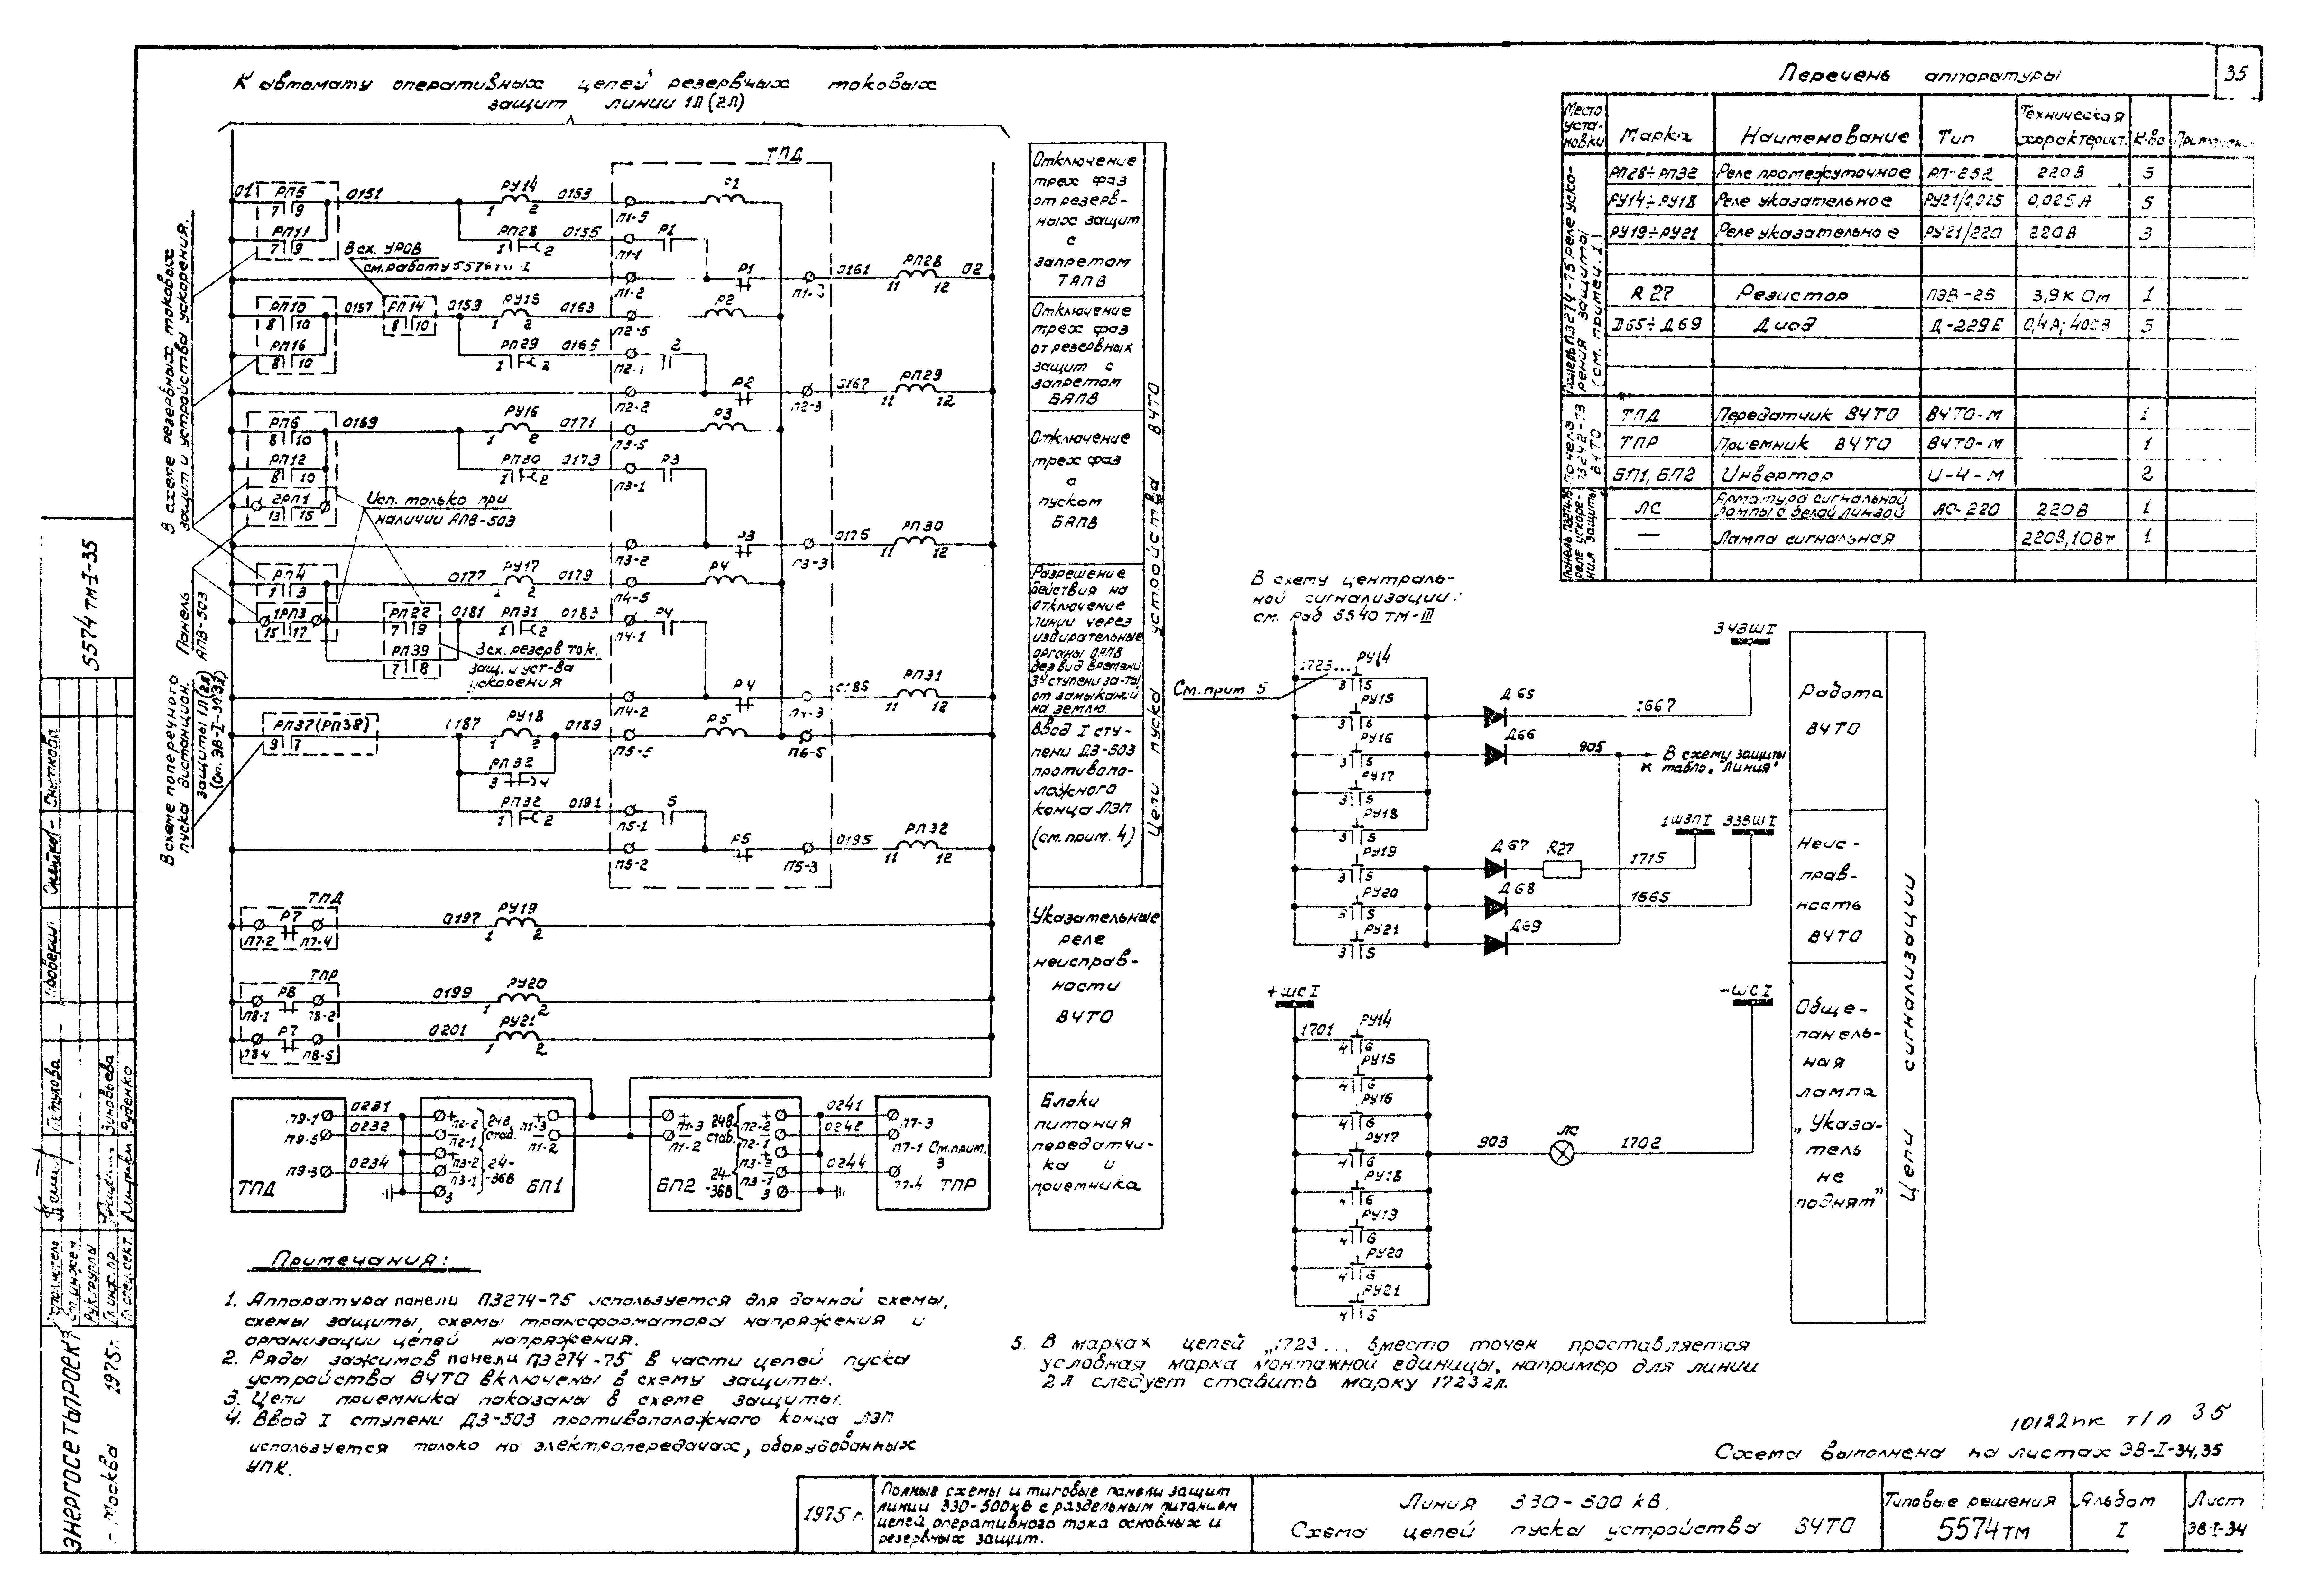 35
К автомату оперативных цепей резервных токовых
защит линии 1Л (2Л)
Перечень аппаратуры
Место установки
Марка
Наименование
Тип
Техническая характерист.
К-во
РП28÷РП32 Реле промежуточное РП-252 220В 5
РУ14÷РУ18 Реле указательное РУ21/0,025 0,025А 5
РУ19÷РУ21 Реле указательное РУ21/220 220В 3
R27 Резистор ПЭВ-25 3,9кОм 1
Д65÷Д69 Диод Д-229Е 0,4А; 400В 5
ТПД Передатчик ВЧТО ВЧТО-М 1
ТПР Приемник ВЧТО ВЧТО-М 1
БП1, БП2 Инвертор И-4-М 2
ЛС Арматура сигнальной лампы с белой линзой АС-220 220В 1
— Лампа сигнальная 220В, 10Вт 1
Панель П3274-75 реле ускорения защиты (см. примеч. 1)
В схеме резервных токовых
защит и устройства ускорения.
Панель
АПВ-503
В схеме поперечного
пуска дистанцион.
защиты 1Л(2Л)
ТПД
01 РП5 0151 РУ14 0153 П1-5 Р1
7 9 1 2
РП11 РП28 0155 П1-1 Р1
7 9 1 2
В сх. УРОВ
П1-2 Р1 П1-3 0161 РП28 02
11 12
РП10 0157 РП14 0159 РУ15 0163 П2-5 Р2
8 10 8 10 1 2
РП16 РП29 0165 П2-1 2
8 10 1 2
П2-2 Р2 П2-3 0167 РП29
11 12
РП6 0169 РУ16 0171 П3-5 Р3
8 10 1 2
РП12 РП30 0173 П3-1 Р3
8 10 1 2
2РП1
13 15
Исп. только при
наличии АПВ-503
П3-2 Р3 П3-3 0175 РП30
11 12
РП4 0177 РУ17 0179 П4-5 Р4
1 3 1 2
1РП3 РП22 0181 РП31 0183 П4-1 Р4
15 17 7 9 1 2
РП39
7 8
В сх. резерв ток.
защ. и уст-ва
ускорения
П4-2 Р4 П4-3 0185 РП31
11 12
РП37(РП38) 0187 РУ18 0189 П5-5 Р5 П6-5
9 7 1 2
РП32
3 4
РП32 0191 П5-1 5
1 2
П5-2 Р5 П5-3 0195 РП32
11 12
ТПД
Р7 0197 РУ19
П7-2 П7-4 1 2
ТПР
Р8 0199 РУ20
П8-1 П8-2 1 2
Р7 0201 РУ21
П8-4 П8-5 1 2
П9-1 0231 П2-2 24В стаб. П1-3
П9-5 0232 П2-1 П1-2
П9-3 0234 П3-2 24-
П3-1 -36В
ТПД З БП1
П1-3 24В стаб. П2-2 0241 П7-3
П1-2 П2-1 0242 П7-1 См. прим. 3
24- П3-2
-36В П3-1 0244 П7-4
БП2 З ТПР
Отключение
трех фаз
от резерв-
ных защит
с
запретом
ТАПВ
Отключение
трех фаз
от резервных
защит с
запретом
БАПВ
Отключение
трех фаз
с
пуском
БАПВ
Разрешение
действия на
отключение
линии через
избирательные
органы ОАПВ
без выд. времени
3 ступени за-ты
от замыканий
на землю.
Ввод I сту-
пени ДЗ-503
противопо-
ложного
конца ЛЭП
(см. прим. 4)
Цепи пуска устройства ВЧТО
Указательные
реле
неисправ-
ности
ВЧТО
Блоки
питания
передатчи-
ка и
приемника
В схему централь-
ной сигнализации:
см. раб 5540 ТМ-III
1723... РУ14
См. прим 5
3 5
РУ15
3 5
РУ16
3 5
РУ17
3 5
РУ18
3 5
РУ19
3 5
РУ20
3 5
РУ21
3 5
Д65 1667
Д66 905
В схему защиты
к табло „Линия"
Д67 R27 1715
Д68 1665
Д69
Работа
ВЧТО
Неис-
прав-
ность
ВЧТО
+ШС I -ШС I
1701 РУ14
4 6
РУ15
4 6
РУ16
4 6
РУ17
4 6
903 ЛС 1702
РУ18
4 6
4 6
РУ20
4 6
РУ21
4 6
Обще-
панель-
ная
лампа
„Указа-
тель
не
поднят"
Цепи сигнализации
Примечания:
1. Аппаратура панели П3274-75 используется для данной схемы,
схемы защиты, схемы трансформатора напряжения и
организации цепей напряжения.
2. Ряды зажимов панели П3274-75 в части цепей пуска
устройства ВЧТО включены в схему защиты.
3. Цепи приемника показаны в схеме защиты.
4. Ввод I ступени ДЗ-503 противоположного конца ЛЭП
используется только на электропередачах, оборудованных
УПК.
5. В марках цепей „1723... вместо точек проставляется
условная марка монтажной единицы, например для линии
2Л следует ставить марку 17232Л.
10122ПК Т/Л 35
Схема выполнена на листах ЭВ-I-34,35
1975г.
Полные схемы и типовые панели защит
линии 330-500кВ с раздельным питанием
цепей оперативного тока основных и
резервных защит.
Линия 330-500 кВ.
Схема цепей пуска устройства ВЧТО
Типовые решения
5574ТМ
Альбом
I
Лист
ЭВ-I-34
5574ТМ-I-35
ЭНЕРГОСЕТЬПРОЕКТ
г. Москва 1975г.